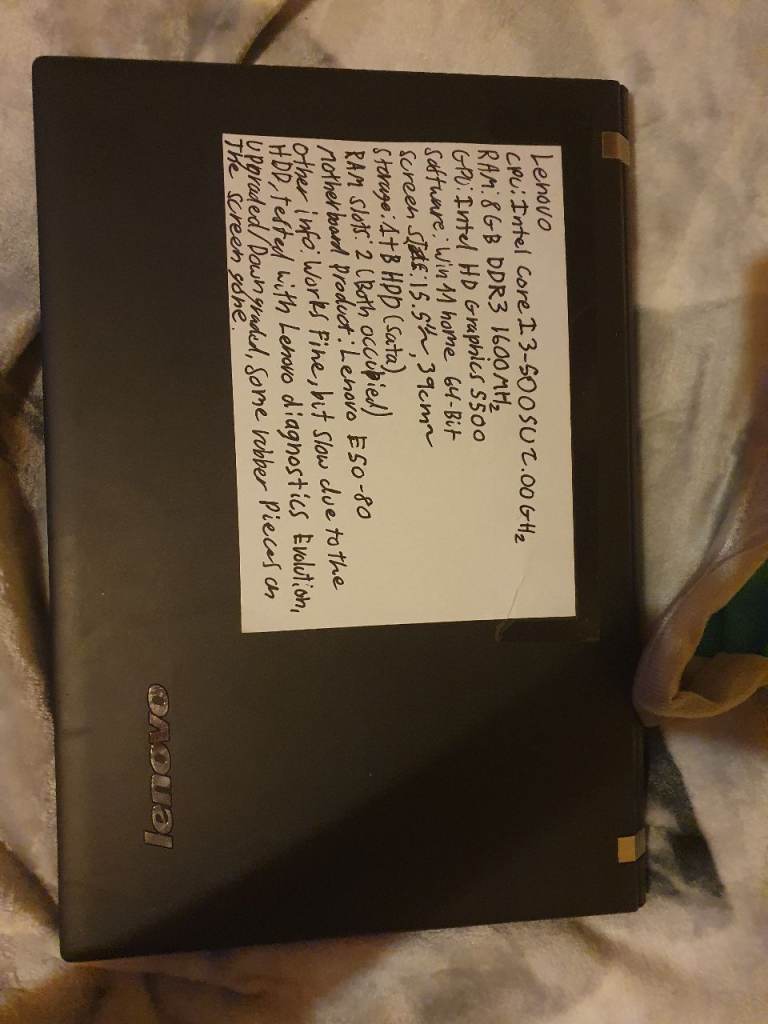 Lenovo
CPU: Intel Core I3-5005U 2.00GHz
RAM: 8GB DDR3 1600MHz
GPU: Intel HD Graphics 5500
Software: Win 11 home 64-Bit
Screen Size: 15.5in, 39cm
Storage: 1TB HDD (Sata)
RAM slots: 2 (Both occupied)
Motherboard product: Lenovo E50-80
Other info: Works fine, but slow due to the
HDD, tested with Lenovo diagnostics Evolution,
Upgraded/Downgraded, some rubber pieces on
The screen gone.
lenovo